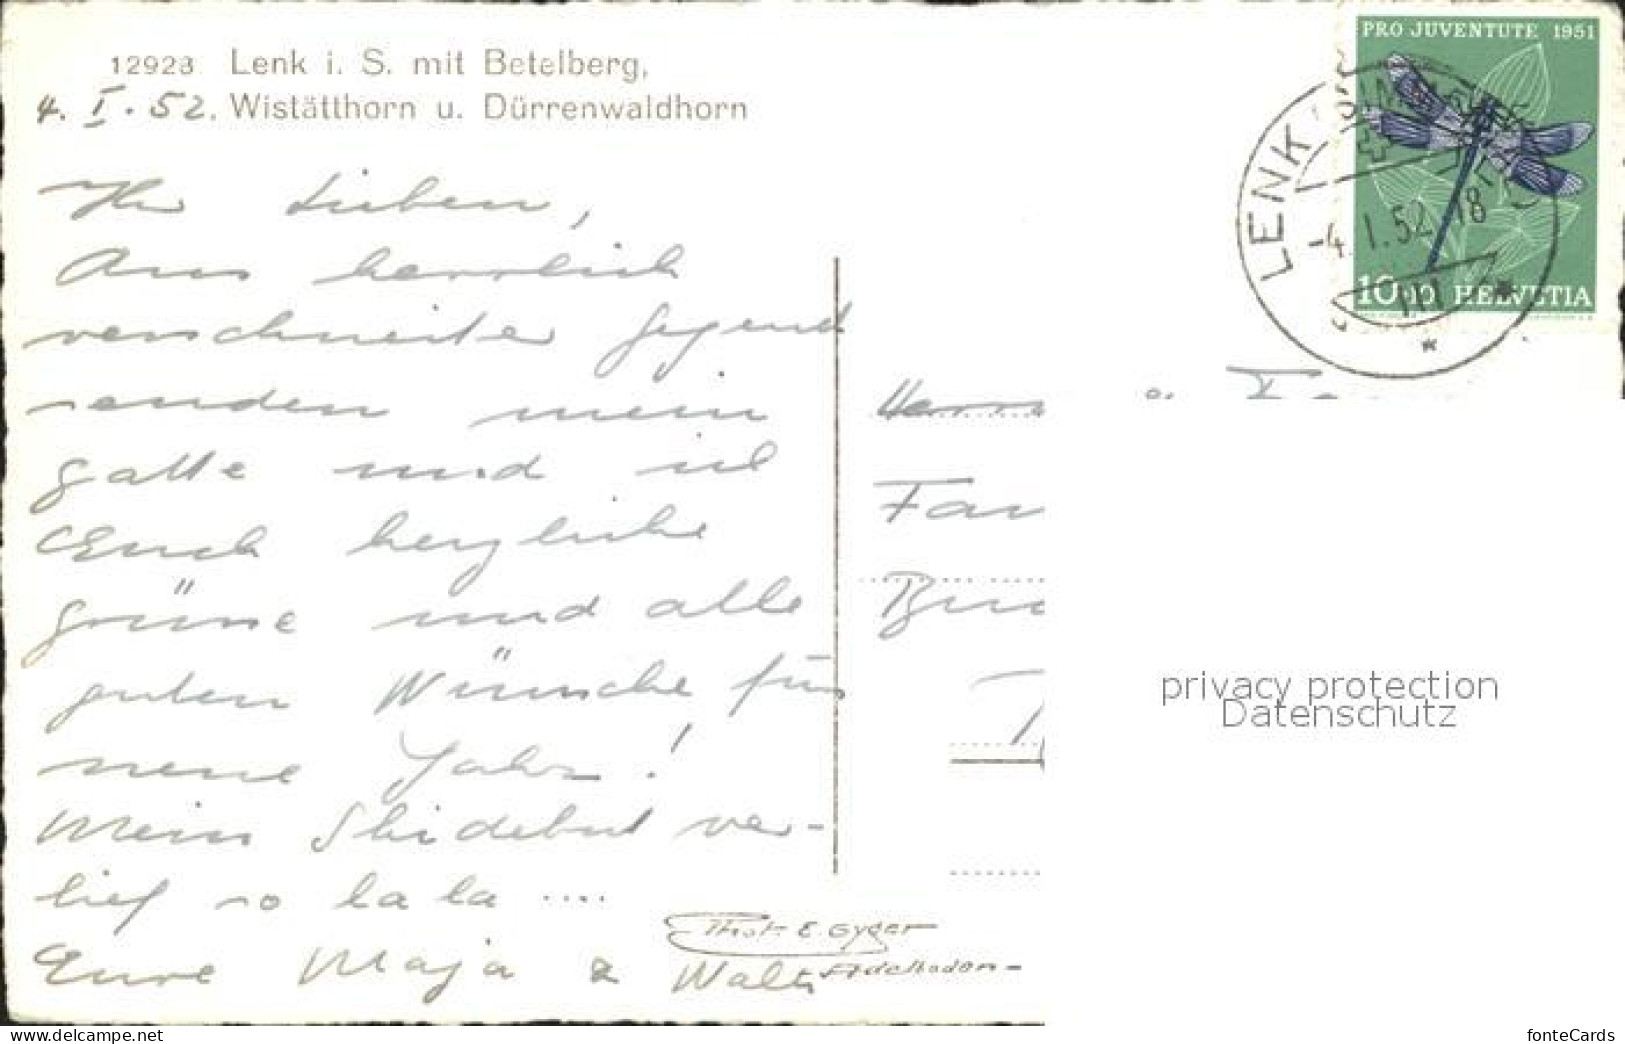 12923 Lenk i. S. mit Betelberg,
4. I. 52. Wistätthorn u. Dürrenwaldhorn
PRO JUVENTUTE 1951
LENK
-4. I. 52. 18
10+10 HELVETIA
Ihr Lieben,
Aus herrlich
verschneiter Gegend
senden mein
Gatte und ich
Euch herzliche
Grüsse und alle
guten Wünsche fürs
neue Jahr!
Mein Skidebut ver-
lief so la la ....
Eure Maja & Walti
Phot. E. Gyger
Adelboden
privacy protection
Datenschutz
www.delcampe.net
fonteCards